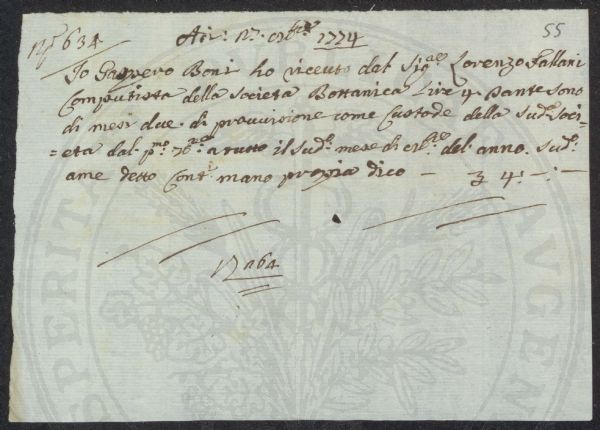 N° 634
55
A dì: 17: 8bre 1774
Io Gaspero Boni ho riceuto dal Sigre Lorenzo Fallani
Computista della Società Bottanica Lire 4 Dante sono
di mesi due di provvisione come Custode della Sudª Soci=
=età dal pmo 7bre a tutto il sudº mese di 8bre del anno Sudº
ame detto Contⁱ mano propia dico — £ 4:—:—
N° 64
PROSPERITATI AUGENDAE